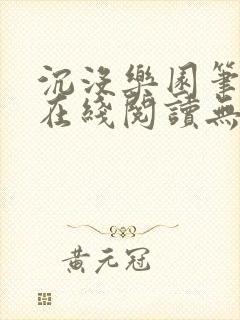 沉沒樂園筆
在綫閱讀無
黃元冠